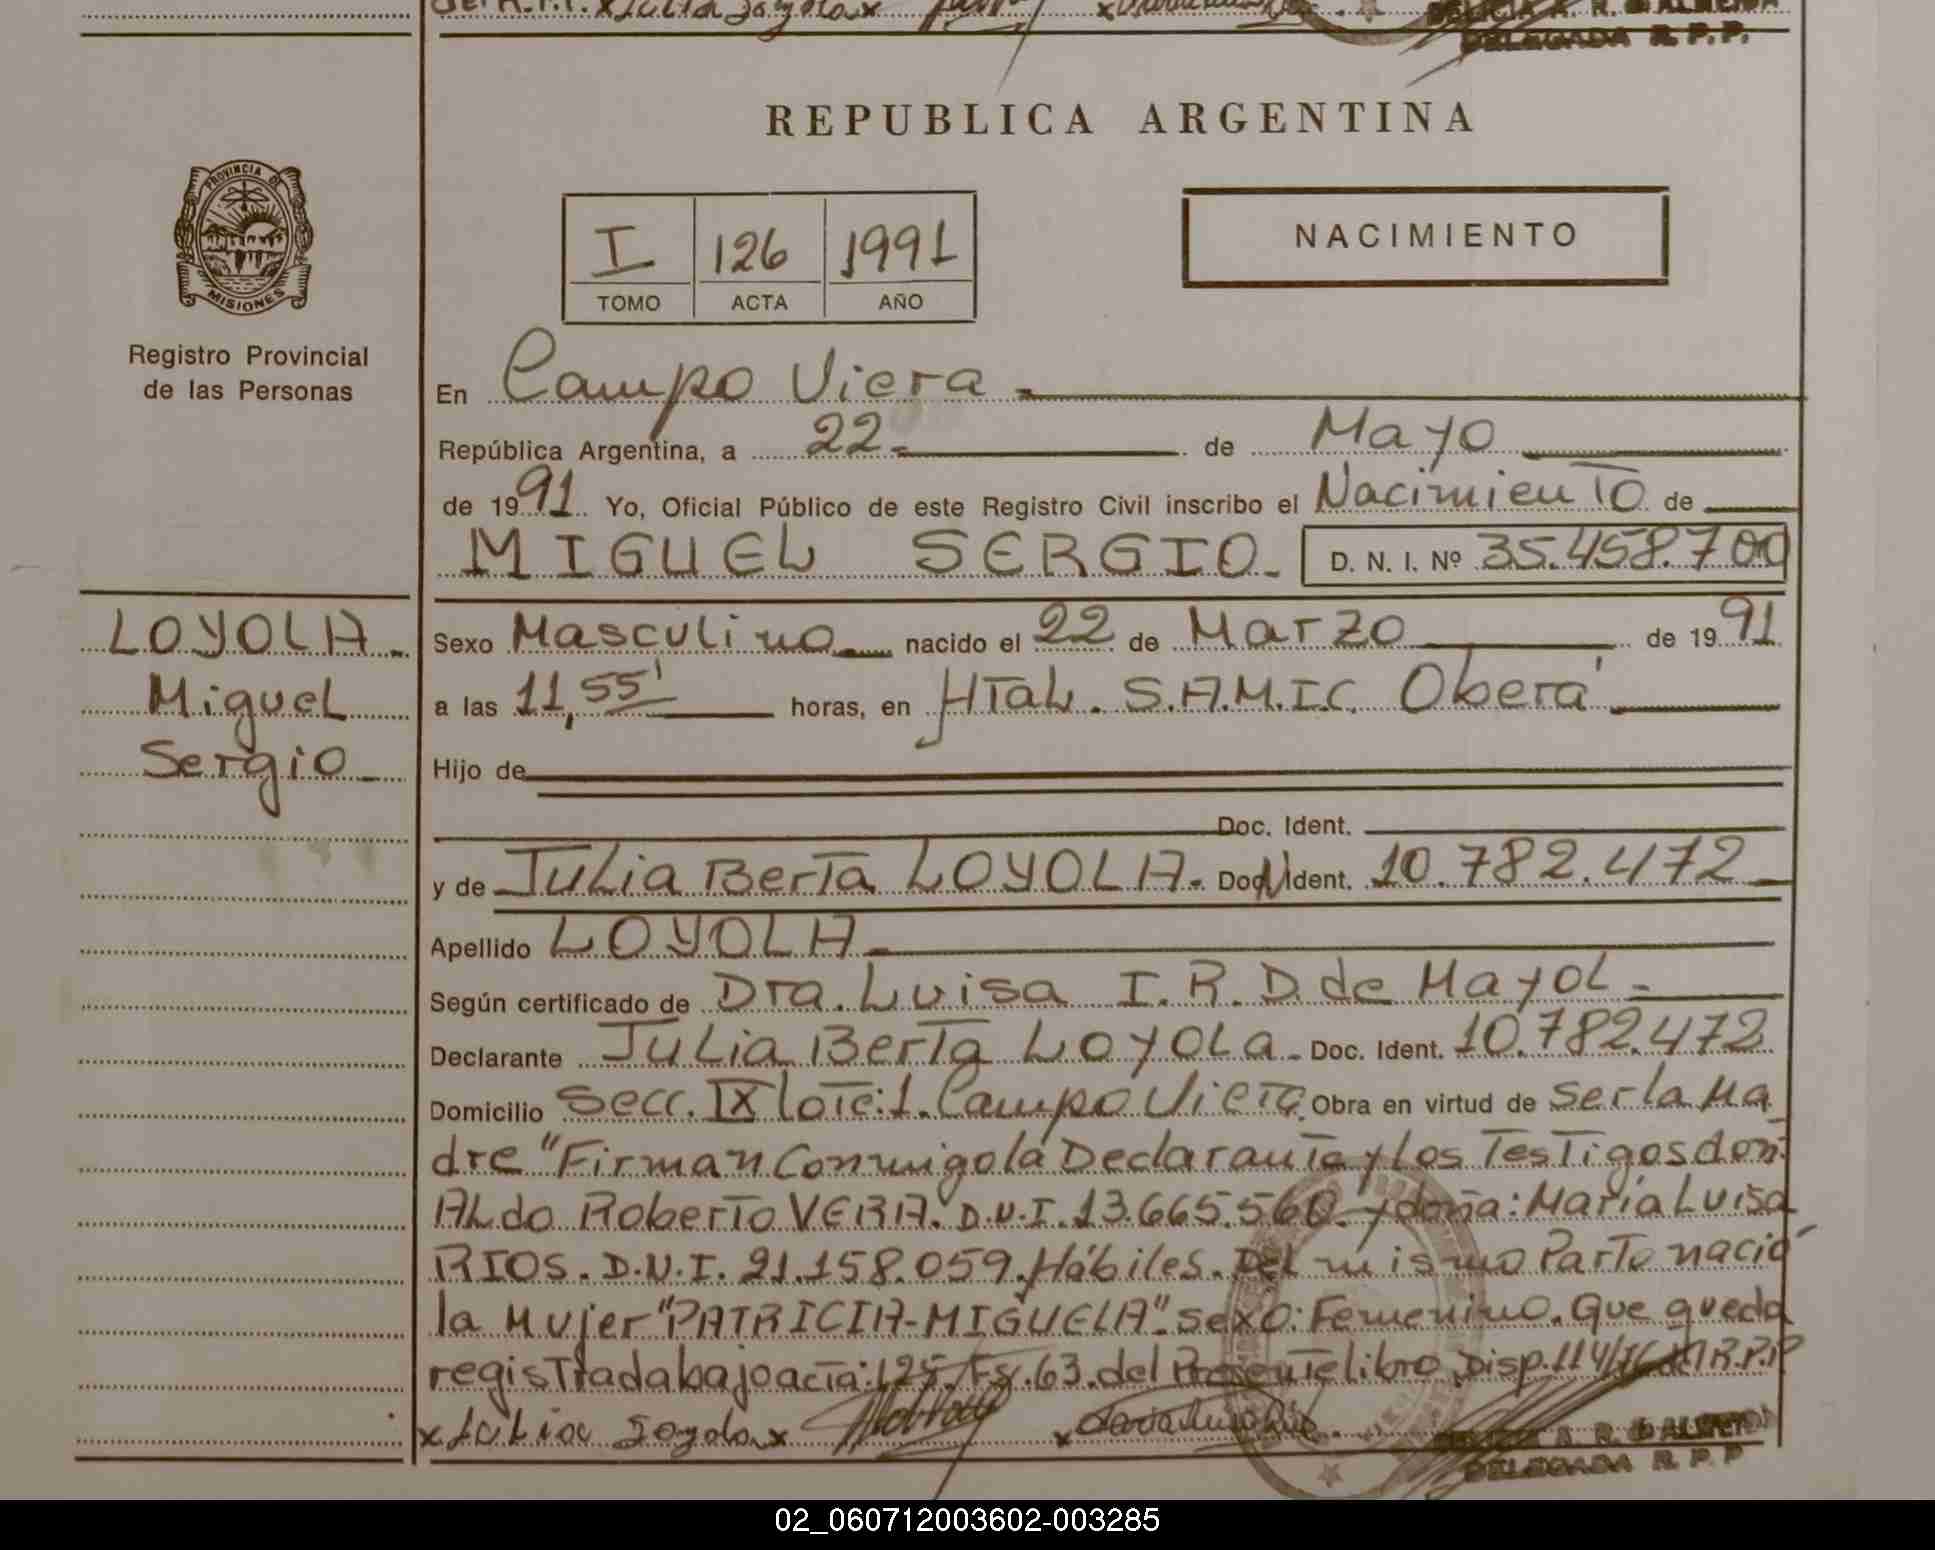 del R.P.P. x Julia Loyola x
DELICIA A. R. D ALMEIDA
DELEGADA R. P. P.
REPUBLICA ARGENTINA
PROVINCIA DE
MISIONES
Registro Provincial
de las Personas
I 126 1991
TOMO ACTA AÑO
NACIMIENTO
En Campo Viera
República Argentina, a 22 de Mayo
de 1991 Yo, Oficial Público de este Registro Civil inscribo el Nacimiento de
MIGUEL SERGIO D. N. I. Nº 35.458.700
LOYOLA
Miguel
Sergio
Sexo Masculino nacido el 22 de Marzo de 1991
a las 11,55' horas, en HTal. S.A.M.I.C. Oberá
Hijo de
Doc. Ident.
y de Julia Berta LOYOLA. Doc. Ident. 10.782.472
Apellido LOYOLA
Según certificado de Dra. Luisa I. R. D. de Mayol
Declarante Julia Berta Loyola Doc. Ident. 10.782.472
Domicilio Secc. IX lote: 1. Campo Viera Obra en virtud de ser la Ma
dre "Firman Conmigo la Declarante y los Testigos don:
Aldo Roberto VERA. D.N.I. 13.665.560. y doña: María Luisa
RIOS. D.N.I. 21.158.059. Hábiles. Del mismo Parto nació
la Mujer "PATRICIA-MIGUELA". sexo: Femenino. Que queda
registrada bajo acta: 125. Fs. 63. del Presente libro. Disp. 114/ R.P.P
x Julia Loyola x x
A. R. D ALMEIDA
DELEGADA R. P. P
02_060712003602-003285